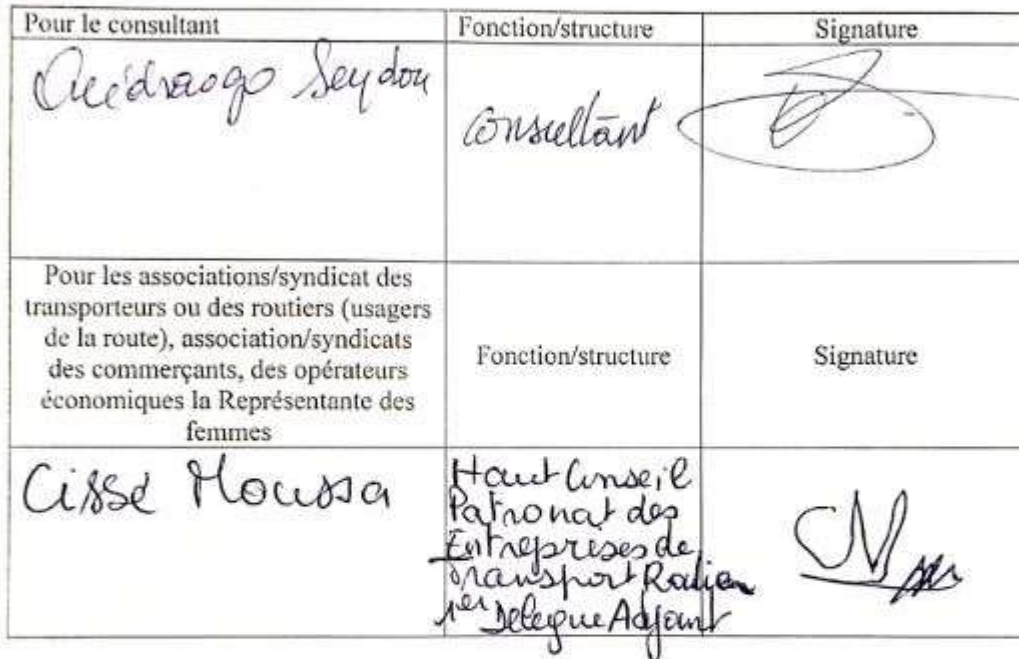 Pour le consultant Fonction/structure Signature
Ouédraogo Seydou Consultant
Pour les associations/syndicat des
transporteurs ou des routiers (usagers
de la route), association/syndicats
des commerçants, des opérateurs
économiques la Représentante des
femmes
Fonction/structure
Signature
Cissé Moussa
Haut Conseil
Patronat des
Entreprises de
Transport
1er Delegue Adjoint